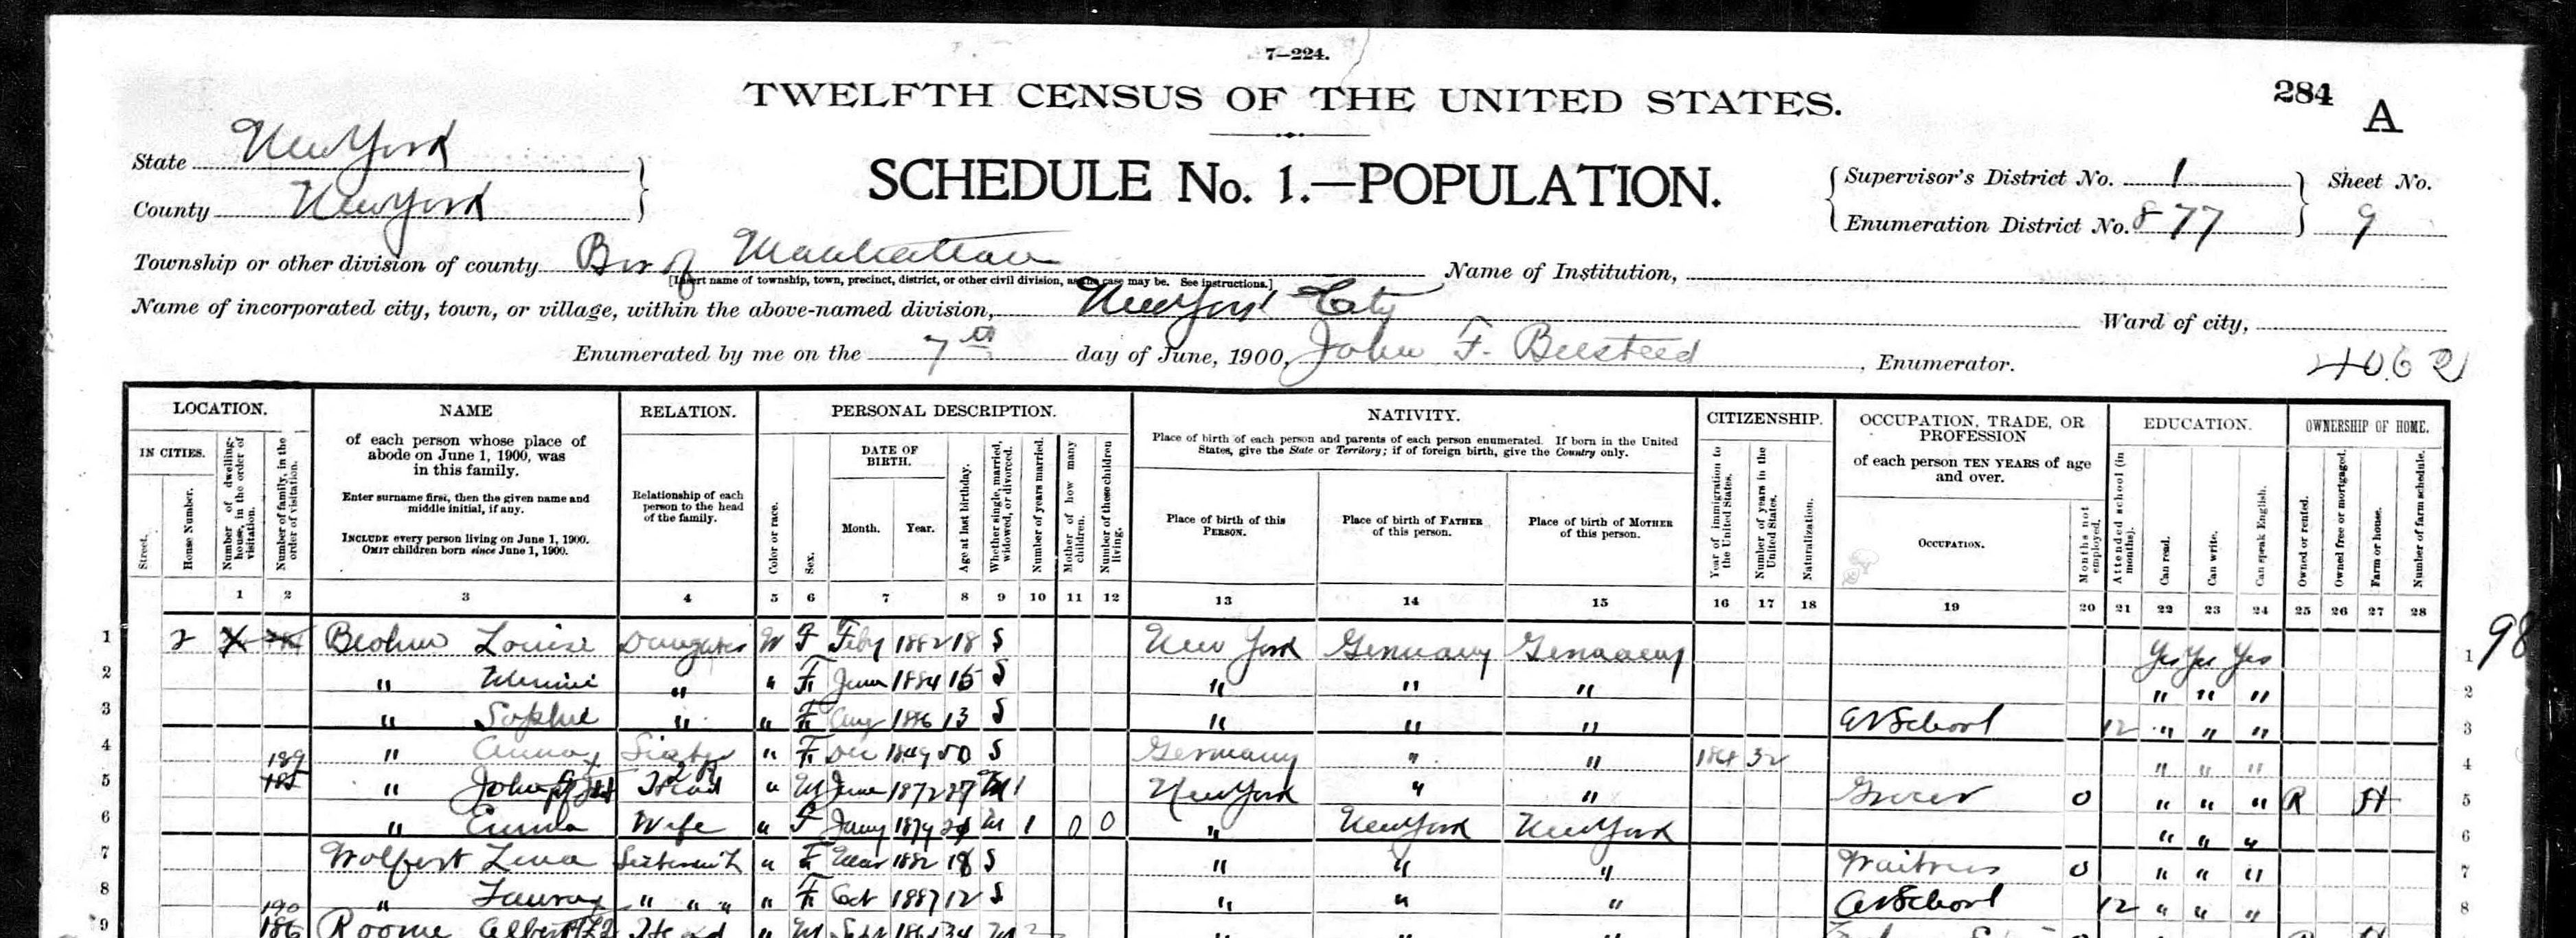 7—224.
TWELFTH CENSUS OF THE UNITED STATES.
284 A
State New York
County New York
SCHEDULE No. 1.—POPULATION.
Supervisor's District No. 1
Enumeration District No. 877
Sheet No. 9
Township or other division of county Bor of Manhattan
[Insert name of township, town, precinct, district, or other civil division, as the case may be. See instructions.]
Name of Institution,
Name of incorporated city, town, or village, within the above-named division, New York City
Ward of city,
Enumerated by me on the 7th day of June, 1900, John F. , Enumerator.
4062
LOCATION.
IN CITIES.
Street.
House Number.
Number of dwelling-house, in the order of visitation.
Number of family, in the order of visitation.
NAME
of each person whose place of abode on June 1, 1900, was in this family.
Enter surname first, then the given name and middle initial, if any.
INCLUDE every person living on June 1, 1900.
OMIT children born since June 1, 1900.
RELATION.
Relationship of each person to the head of the family.
PERSONAL DESCRIPTION.
Color or race.
Sex.
DATE OF BIRTH.
Month. Year.
Age at last birthday.
Whether single, married, widowed, or divorced.
Number of years married.
Mother of how many children.
Number of these children living.
NATIVITY.
Place of birth of each person and parents of each person enumerated. If born in the United States, give the State or Territory; if of foreign birth, give the Country only.
Place of birth of this PERSON.
Place of birth of FATHER of this person.
Place of birth of MOTHER of this person.
CITIZENSHIP.
Year of immigration to the United States.
Number of years in the United States.
Naturalization.
OCCUPATION, TRADE, OR PROFESSION
of each person TEN YEARS of age and over.
OCCUPATION.
Months not employed.
EDUCATION.
Attended school (in months).
Can read.
Can write.
Can speak English.
OWNERSHIP OF HOME.
Owned or rented.
Owned free or mortgaged.
Farm or house.
Number of farm schedule.
1 2 3 4 5 6 7 8 9 10 11 12 13 14 15 16 17 18 19 20 21 22 23 24 25 26 27 28
1 2 Louise Daughter W F Feby 1882 18 S New York Germany Germany Yes Yes Yes 1 98
2 " " " F June 1884 15 S " " " " " " 2
3 " Sophie " " F Aug 1886 13 S " " " At School 12 " " " 3
4 " Anna Sister " F Dec 1849 50 S Germany " " 32 " " " 4
189 5 " John Head " M June 1872 27 M 1 New York " " Grocer 0 " " " R H 5
6 " Emma Wife " F Jany 1879 21 M 1 0 0 " New York New York " " " 6
7 Wolfert Lena Sister in L " F Mar 1882 18 S " " " Waitress 0 " " " 7
8 " " " " " F Oct 1887 12 S " " " At School 12 " " " 8
190 9 186 Roome Albert Head " M Sept 34 M